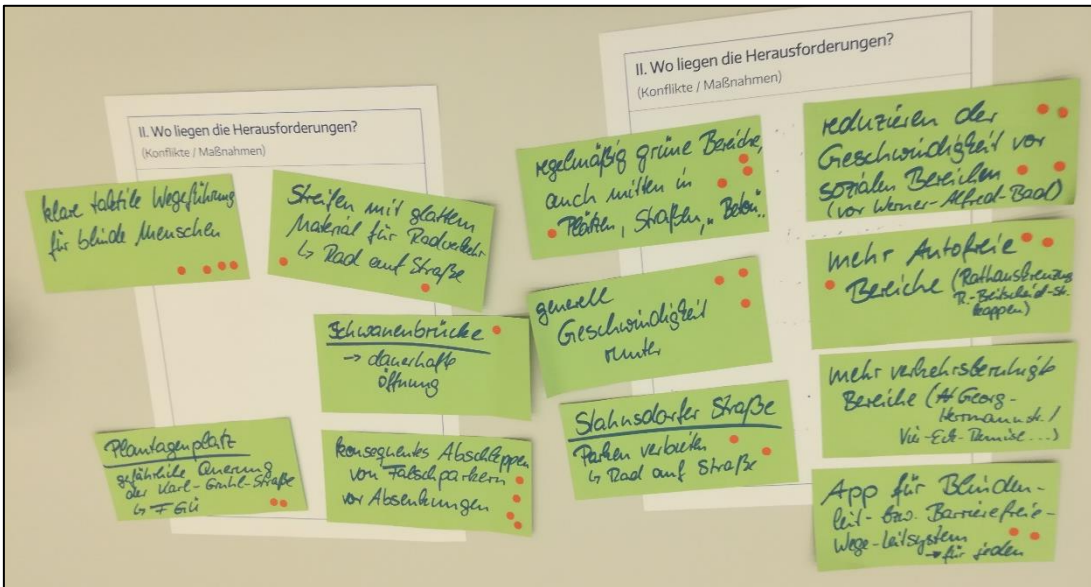 II. Wo liegen die Herausforderungen?
(Konflikte / Maßnahmen)
klare taktile Wegeführung
für blinde Menschen
Streifen mit glattem
Material für Radverkehr
↳ Rad auf Straße
Schwanenbrücke
→ dauerhafte
Öffnung
Plantagenplatz
gefährliche Querung
der Karl-Gruhl-Straße
↳ FGÜ
konsequentes Abschleppen
von Falschparkern
vor Absenkungen
II. Wo liegen die Herausforderungen?
(Konflikte / Maßnahmen)
regelmäßig grüne Bereiche,
auch mitten in
Plätzen, Straßen, "Beton"
generell
Geschwindigkeit
runter
Stahnsdorfer Straße
Parken verbieten
↳ Rad auf Straße
reduzieren der
Geschwindigkeit vor
sozialen Bereichen
(vor Werner-Alfred-Bad)
mehr Autofreie
Bereiche (Rathauskreuzung
R.-Breitscheid-Str.
kappen)
mehr verkehrsberuhigte
Bereiche (Georg-
Hermannstr. /
...)
App für Blinden-
leit- bzw. Barrierefreie-
Wege-Leitsystem
→ für jeden